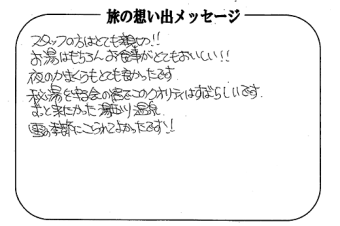 旅の想い出メッセージ
スタッフの方はとても親切!!
お湯はもちろんお食事がとてもおいしい!!
夜のかまくらもとても良かったです
秘湯を守る会の宿でこのクオリティはすばらしいです.
ずっと来たかった湯西川温泉
雪の季節にこられてよかったです!!